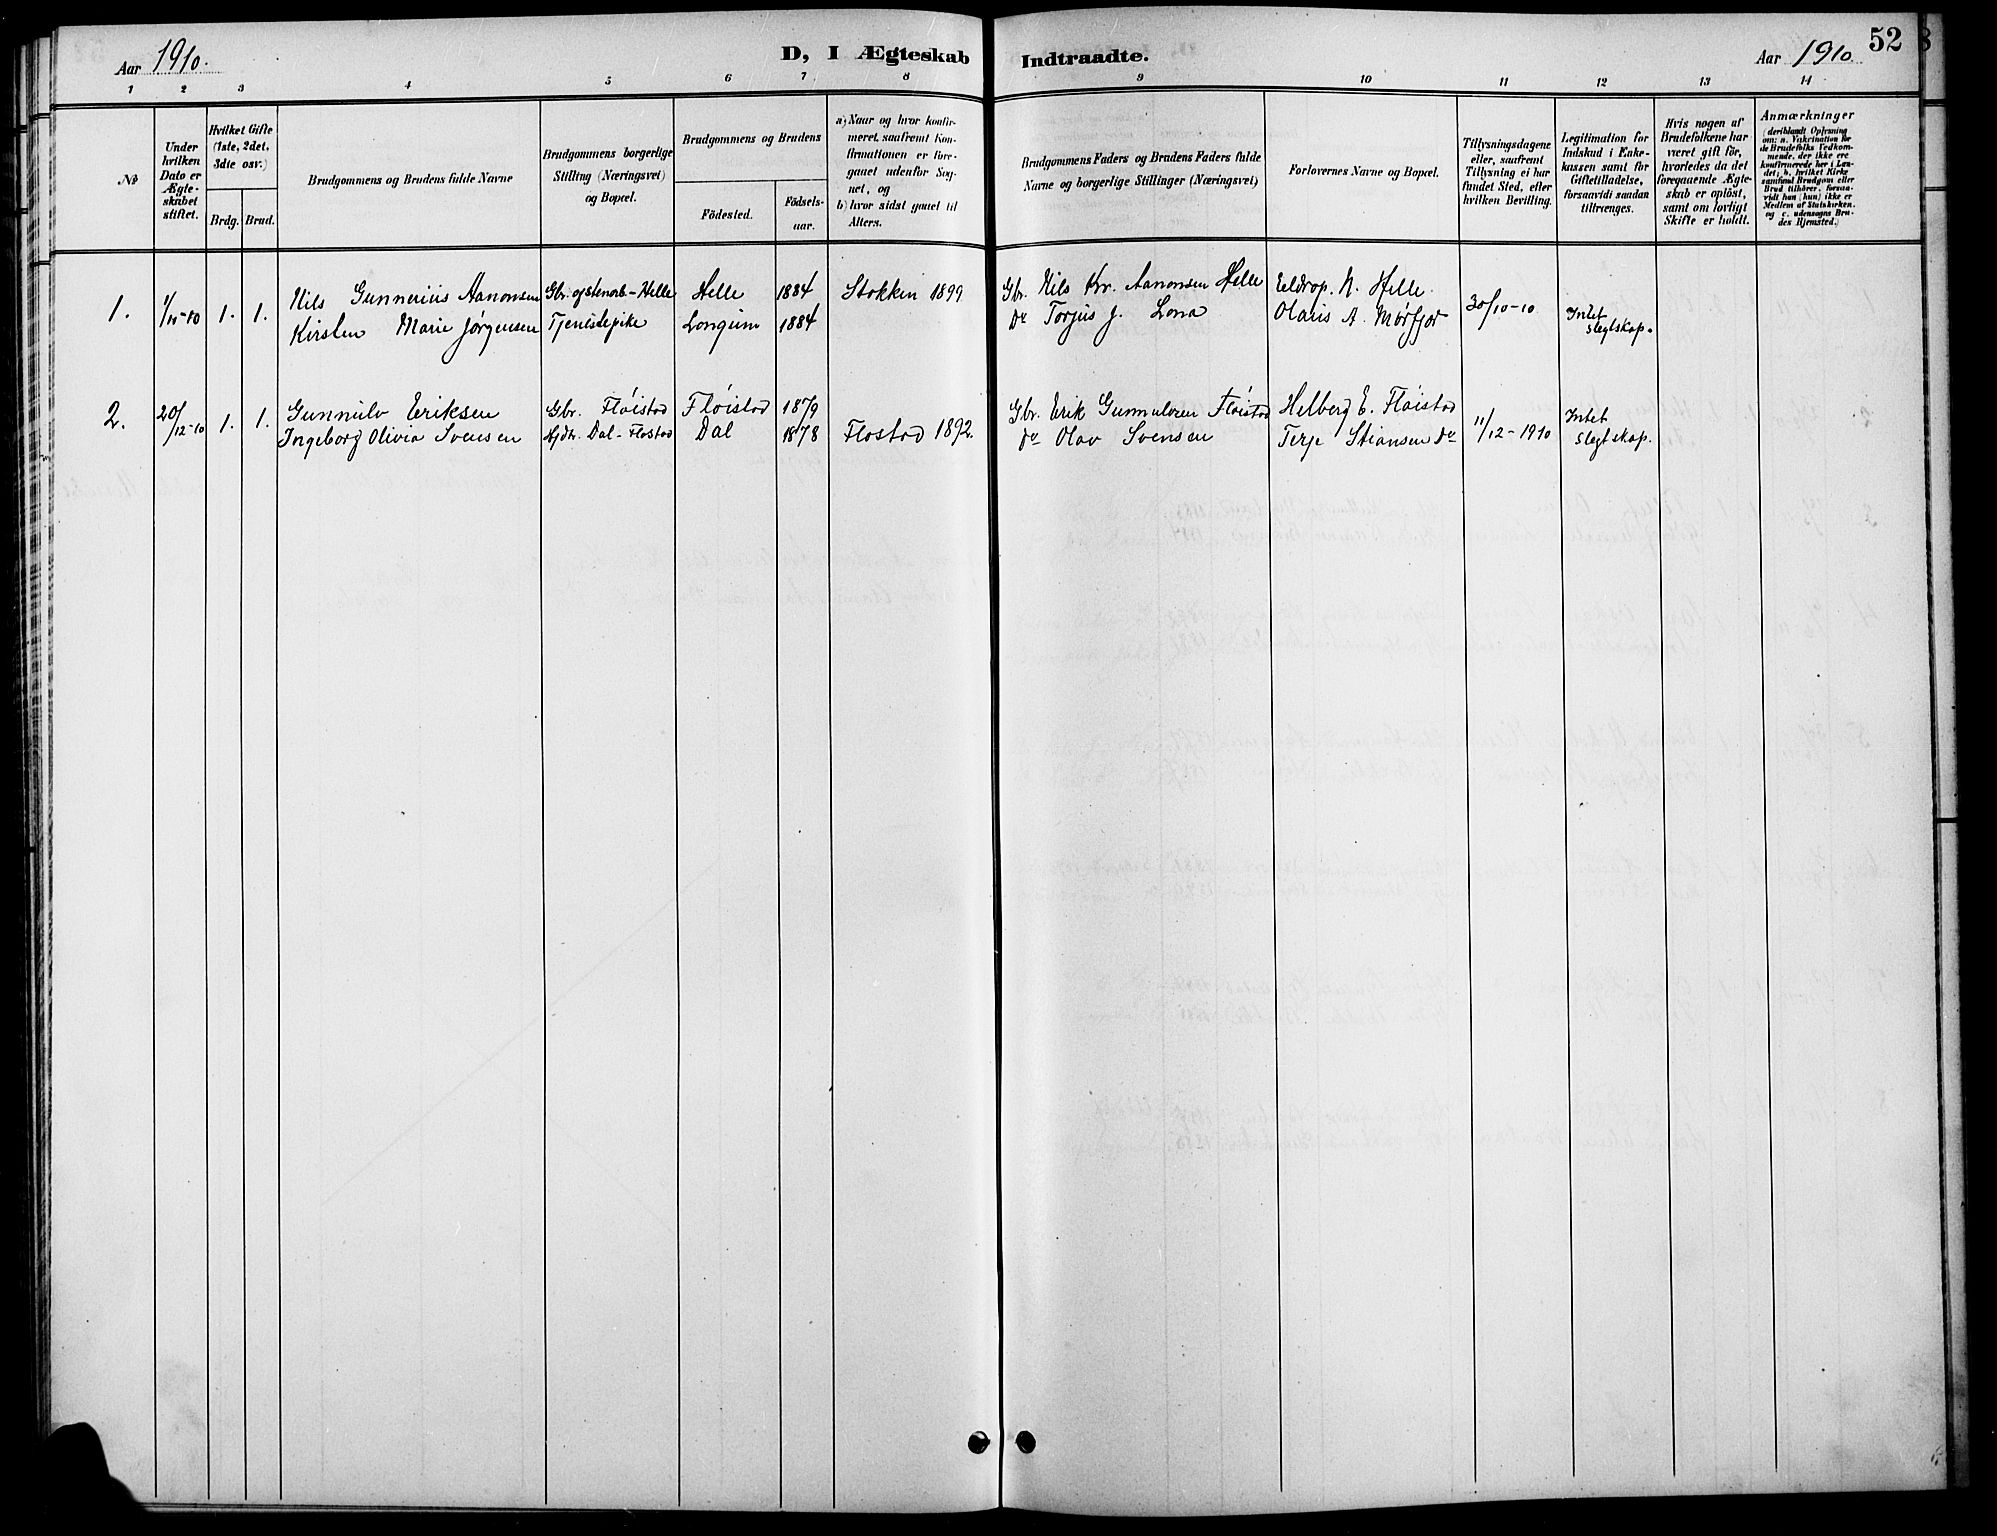 Aar 1910.
D, I Ægteskab Indtraadte.
Aar 1910
52
1 2 3 4 5 6 7 8 9 10 11 12 13 14
№
Under hvilken Dato er Ægteskabet stiftet.
Hvilket Gifte (1ste, 2det, 3die osv.)
Brdg. Brud.
Brudgommens og Brudens fulde Navne
Brudgommens borgerlige Stilling (Næringsvei) og Bopæl.
Brudgommens og Brudens
Födested.
Födselsaar.
a) Naar og hvor konfirmeret, saafremt Konfirmationen er foregaaet udenfor Sognet, og
b) hvor sidst gaaet til Alters.
Brudgommens Faders og Brudens Faders fulde Navne og borgerlige Stillinger (Næringsvei)
Forlovernes Navne og Bopæl.
Tillysningsdagene eller, saafremt Tillysning ei har fundet Sted, efter hvilken Bevilling.
Legitimation for Indskud i Enkekassen samt for Giftetilladelse, forsaavidt saadan tiltrænges.
Hvis nogen af Brudefolkene har været gift för, hvorledes da det foregaaende Ægteskab er oplöst, samt om lovligt Skifte er holdt.
Anmærkninger
(deriblandt Oplysning om: a. Vakcination for de Brudefolks Vedkommende, der ikke ere konfirmerede her i Landet; b. hvilket Kirkesamfund Brudgom eller Brud tilhører, forsaavidt han (hun) ikke er Medlem af Statskirken, og c. udensogns Brudes Hjemsted.)
1. 1/11-10 1. 1. Nils Gunnerius Aanonsen Gbr. og stenarb-Helle Helle 1884 Stokken 1899 Gbr. Nils Kr. Aanonsen Helle Eldrop. N. Helle. 30/10-10 Intet slegtskap.
Kirsten Marie Jørgensen Tjenistepike Longum 1884 Do Torjus J. Lona Olaus A. Mørfjor
2. 20/12-10 1. 1. Gunnulv Eriksen Gbr. Fløistad Fløistad 1879 Gbr. Erik Gunnulvsen Fløistad Helberg E. Fløistad 11/12-1910 Intet slegtskap.
Ingeborg Olivia Svensen Hjdtr. Dal-Flostad Dal 1878 Flostad 1892. Do Olav Svensen Terje Stiansen Do